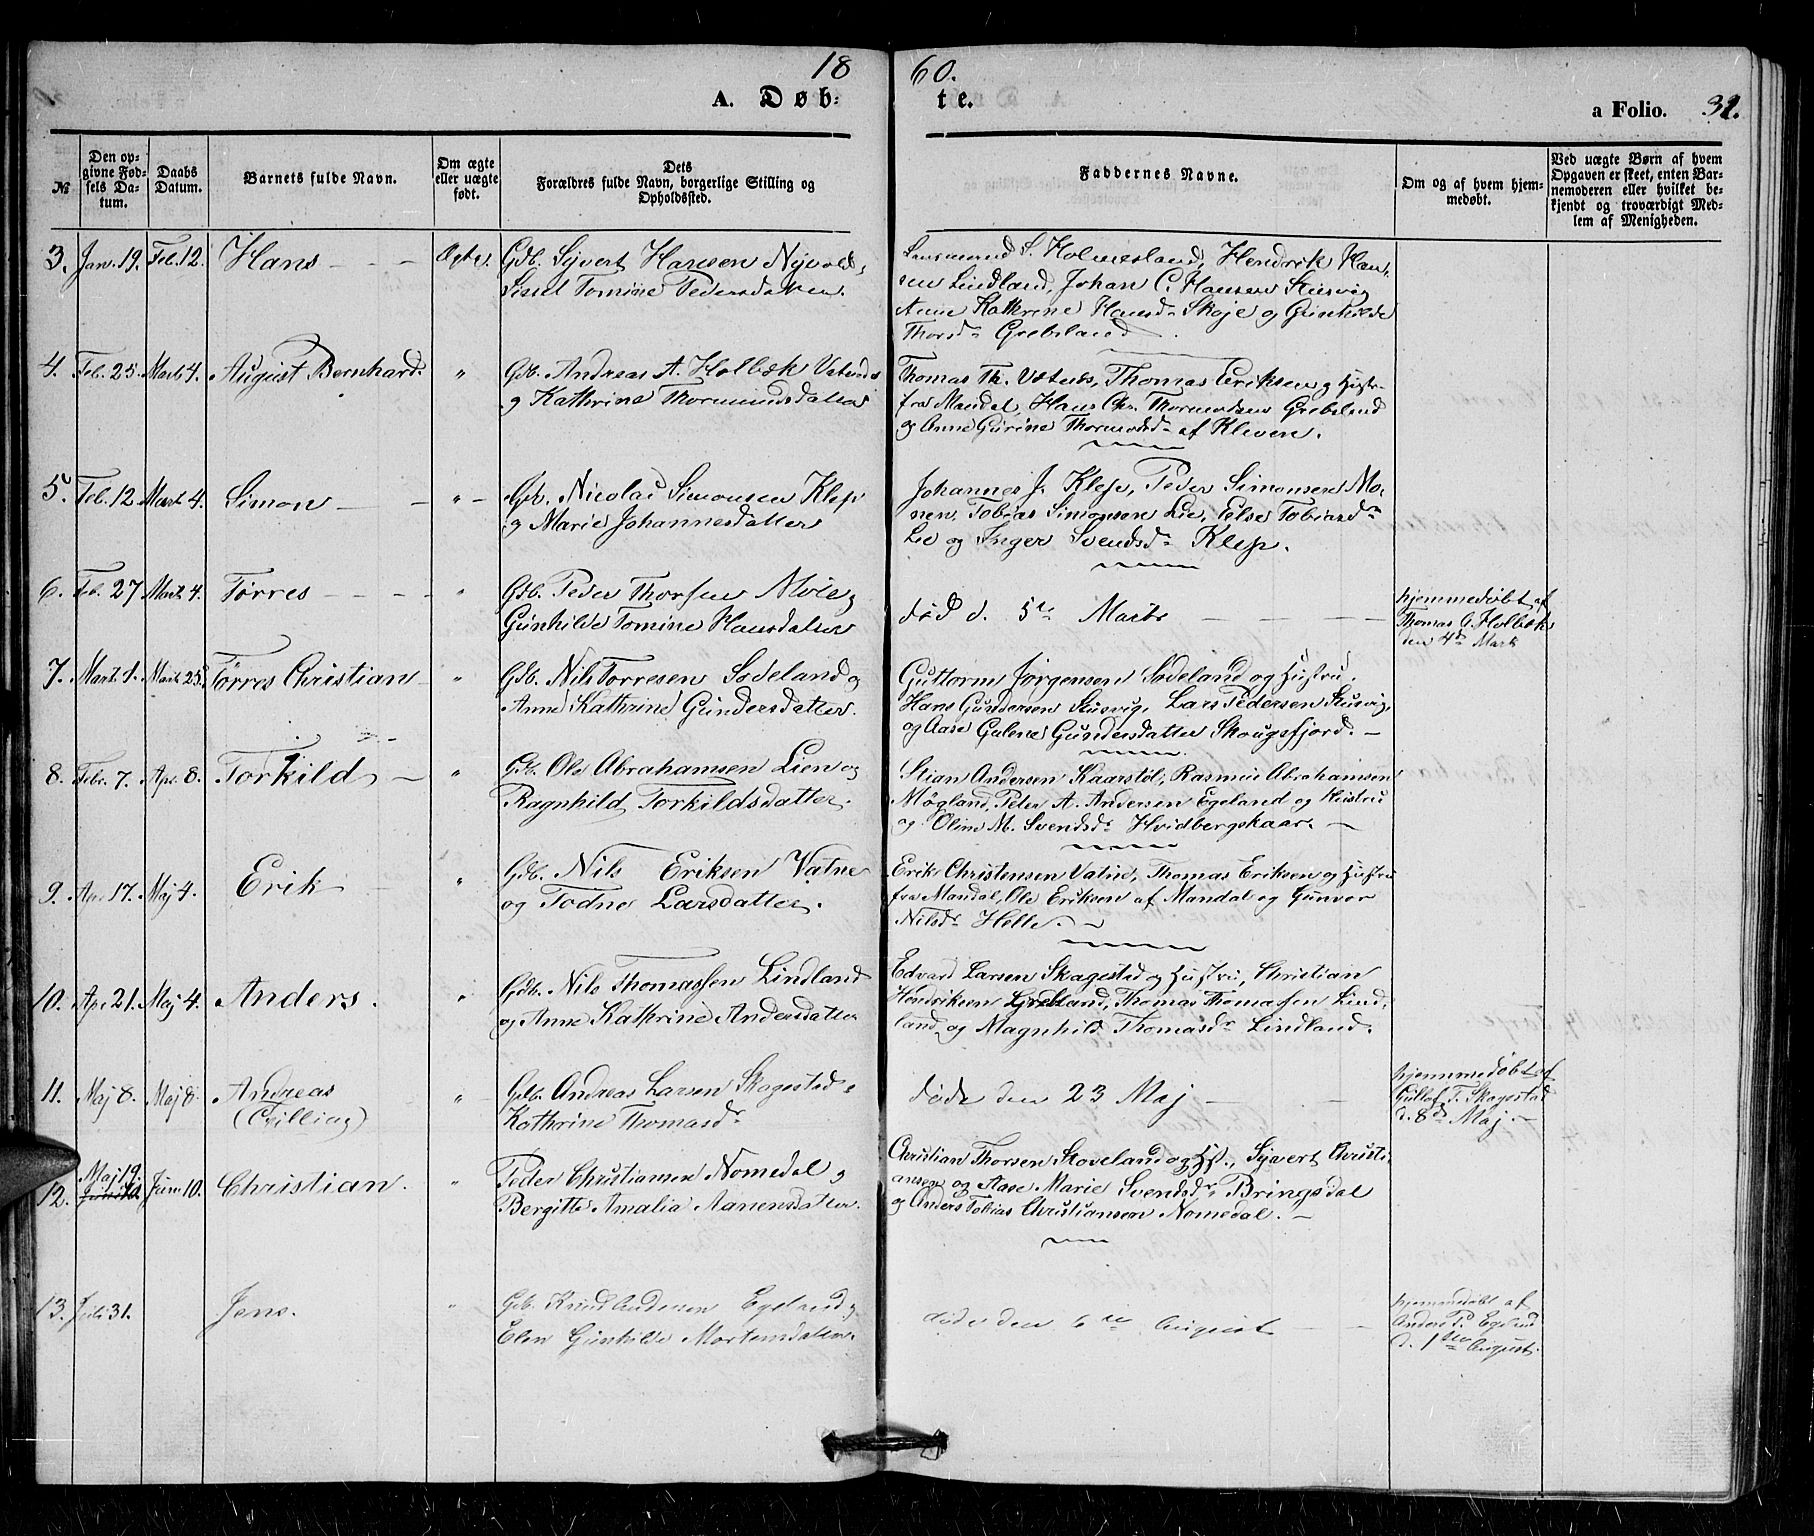 18 60.
A. Døb- te.
a Folio. 32.
№
Den op-
givne Fød-
sels Da-
tum.
Daabs
Datum.
Barnets fulde Navn.
Om ægte
eller uægte
født.
Dets
Forældres fulde Navn, borgerlige Stilling og
Opholdssted.
Faddernes Navne.
Om og af hvem hjem-
medøbt.
Ved uægte Børn af hvem
Opgaven er skeet, enten Bar-
nemoderen eller hvilket be-
kjendt og troværdigt Med-
lem af Menigheden.
3. Jan. 19. Feb. 12. Hans Ægte.
Gdb. Syvert Hansen Nyvold,
Sissel Tomine Pedersdatter.
Lensmand S. Holmesland, Hendrik Han-
sen Lindland, Johan C. Hansen Stusvig
Anne Kathrine Hansd. Skoje og Gunhilde
Thorsd. Grebsland.
4. Feb. 25. Mart 4. August Bernhard. "
Gdb. Andreas A. Holbæk
og Kathrine Thormundsdatter
Thomas Th. Thomas Eriksen og Hustr.
fra Mandal, Hans Chr. Thormodsen Grebsland
og Anne Gurine Thormodsd. af Kleven.
5. Feb. 12. Mart 4. Simon "
Gdb. Nicolai Simonsen Klep
og Marie Johannesdatter
Johannes J. Klep, Peder Simonsen Mo-
nen, Tobias Simonsen Lie, Else Tobiasd.
Lie og Inger Svendsd. Klep.
6. Feb. 27 Mart 4. Tørres "
Gdb. Peder Thorsen Moieg
Gunhilde Tomine Hansdatter
død d. 5te Marts
hjemmedøbt af
Thomas C. Holbæk
den 4de Mart
7. Mart 1. Mart 25. Tørres Christian "
Gdb. Nils Torresen Sodeland og
Anne Kathrine Gundersdatter.
Guttorm Jørgensen Sodeland og Hustru.
Hans Gundersen Stusvig, Lars Pedersen Stusvig,
og Aase Gulene Gundersdatter Skougsfjord.
8. Febr. 7. Apr. 8. Torkild "
Gdb. Ole Abrahamsen Lien og
Ragnhild Torkildsdatter.
Stian Andersen Kaarstøl, Rasmus Abrahamsen
Møgland, Peter A. Andersen Egeland og Hustru
og Oline M. Svendsdr. Hvidbergskaar.
9. Apr. 17. Maj 4. Erik "
Gdb. Nils Eriksen Vatne
og Todne Larsdatter.
Erik Christensen Vatne, Thomas Eriksen og Hustru
fra Mandal, Ole Eriksen af Mandal og Gunvor
Nilsdr. Helle.
10. Apr. 21. Maj 4. Anders. "
Gdb. Nils Thomassen Lindland
og Anne Kathrine Andersdatter
Edvard Larsen Skagestad og Hustru, Christian
Hendriksen Thomas Thomassen Lind-
land, og Magnhild Thomasdr. Lindland.
11. Maj 8. Maj 8. Andreas "
(Tvilling)
Gdb. Andreas Larsen Skagestad,
Kathrine Thomasdr.
døde den 23 Maj
hjemmedøbt af
Gullof T. Skagestad
d. 8de Maj.
12. Maj 19. Juni 10. Christian. "
Peder Christiansen Nomedal og
Bergitte Amalia Aanensdatter.
Christian Thorsen Stoveland og Hst., Syvert Christi-
ansen og Aase Marie Svendsdr. Bringsdal
og Anders Tobias Christiansen Nomedal.
13. Juli 31. Jens. "
Gdb. Knud Andersen Egeland og
Elen Gunhilde Mortensdatter.
døde den 6te August
hjemmedøbt af
Anders P. Egeland
d. 1ste August.